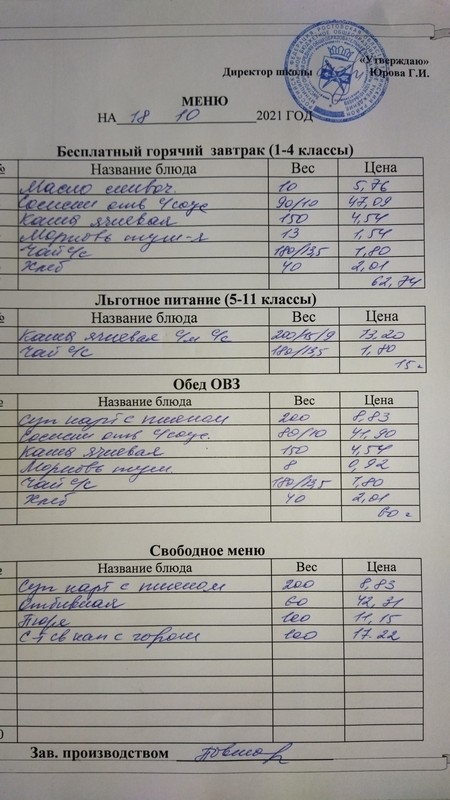 «Утверждаю»
Директор школы Юрова Г.И.
МЕНЮ
НА 18 10 2021 ГОД
Бесплатный горячий завтрак (1-4 классы)
№ Название блюда Вес Цена
Масло сливоч. 10 5,76
Сосиски отв с/соус 90/10 47,09
Каша ячневая 150 4,54
Морковь туш-я 13 1,54
Чай с/с 180/13,5 1,80
Хлеб 40 2,01
62,74
Льготное питание (5-11 классы)
№ Название блюда Вес Цена
Каша ячневая с/м с/с 200/15/9 13,20
Чай с/с 180/13,5 1,80
15
Обед ОВЗ
№ Название блюда Вес Цена
Суп карт с пшеном 200 8,83
Сосиски отв с/соус. 80/10 41,90
Каша ячневая 150 4,54
Морковь туш. 8 0,92
Чай с/с 180/13,5 1,80
Хлеб 40 2,01
60
Свободное меню
№ Название блюда Вес Цена
Суп карт с пшеном 200 8,83
Отбивная 60 42,31
Пюре 100 11,15
100 17.22
Зав. производством